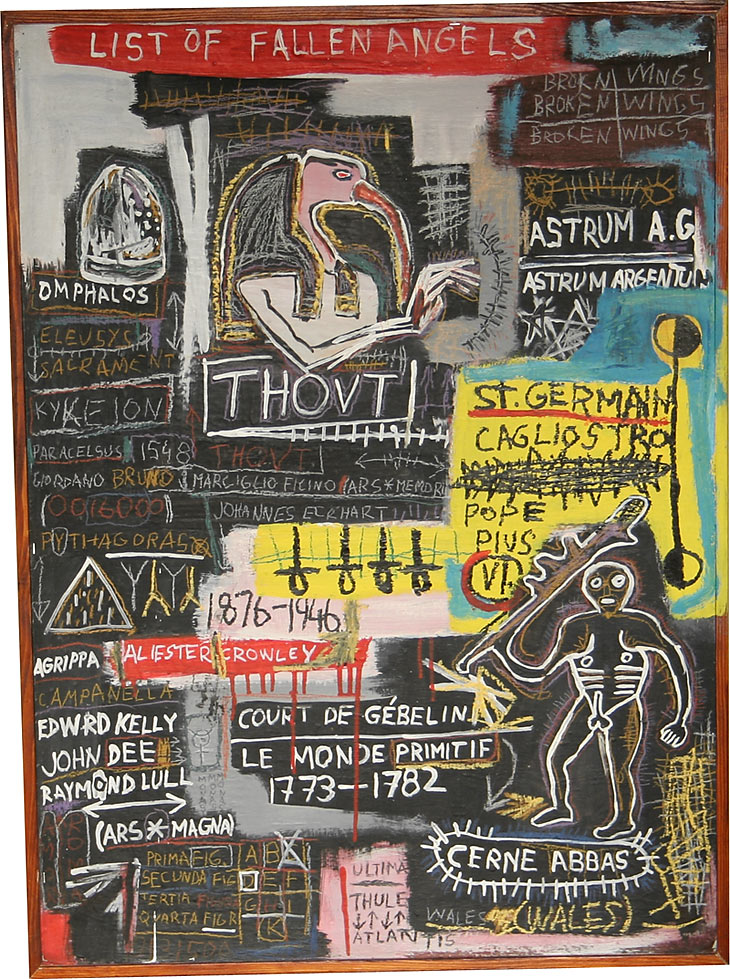 LIST OF FALLEN ANGELS
BROKN WINGS
BROKEN WINGS
BROKEN WINGS
ASTRUM A.G
ASTRUM ARGENTUM
OMPHALOS
ELEUSYS
SACRAMENT
KYKEION
THOVT
ST. GERMAIN
CAGLIOSTRO
POPE
PIUS
VI
PARACELSUS 1548
THOVT
GIORDANO BRUNO
MARCIGLIO FICINO (ARS*MEMORI
JOHANNES ECKHART
PYTHAGORAS
1876-1946
ALIESTER CROWLEY
AGRIPPA
CAMPANELLA
EDWRD KELLY
JOHN DEE
RAYMOND LULL
(ARS*MAGNA)
COURT DE GÉBELIN
LE MONDE PRIMITIF
1773-1782
CERNE ABBAS
WALES (WALES)
PRIMA FIG. A B
SECUNDA FIG E F
TERTIA G I
QUARTA FIGR K
ULTIMA
THULE
ATLANTIS